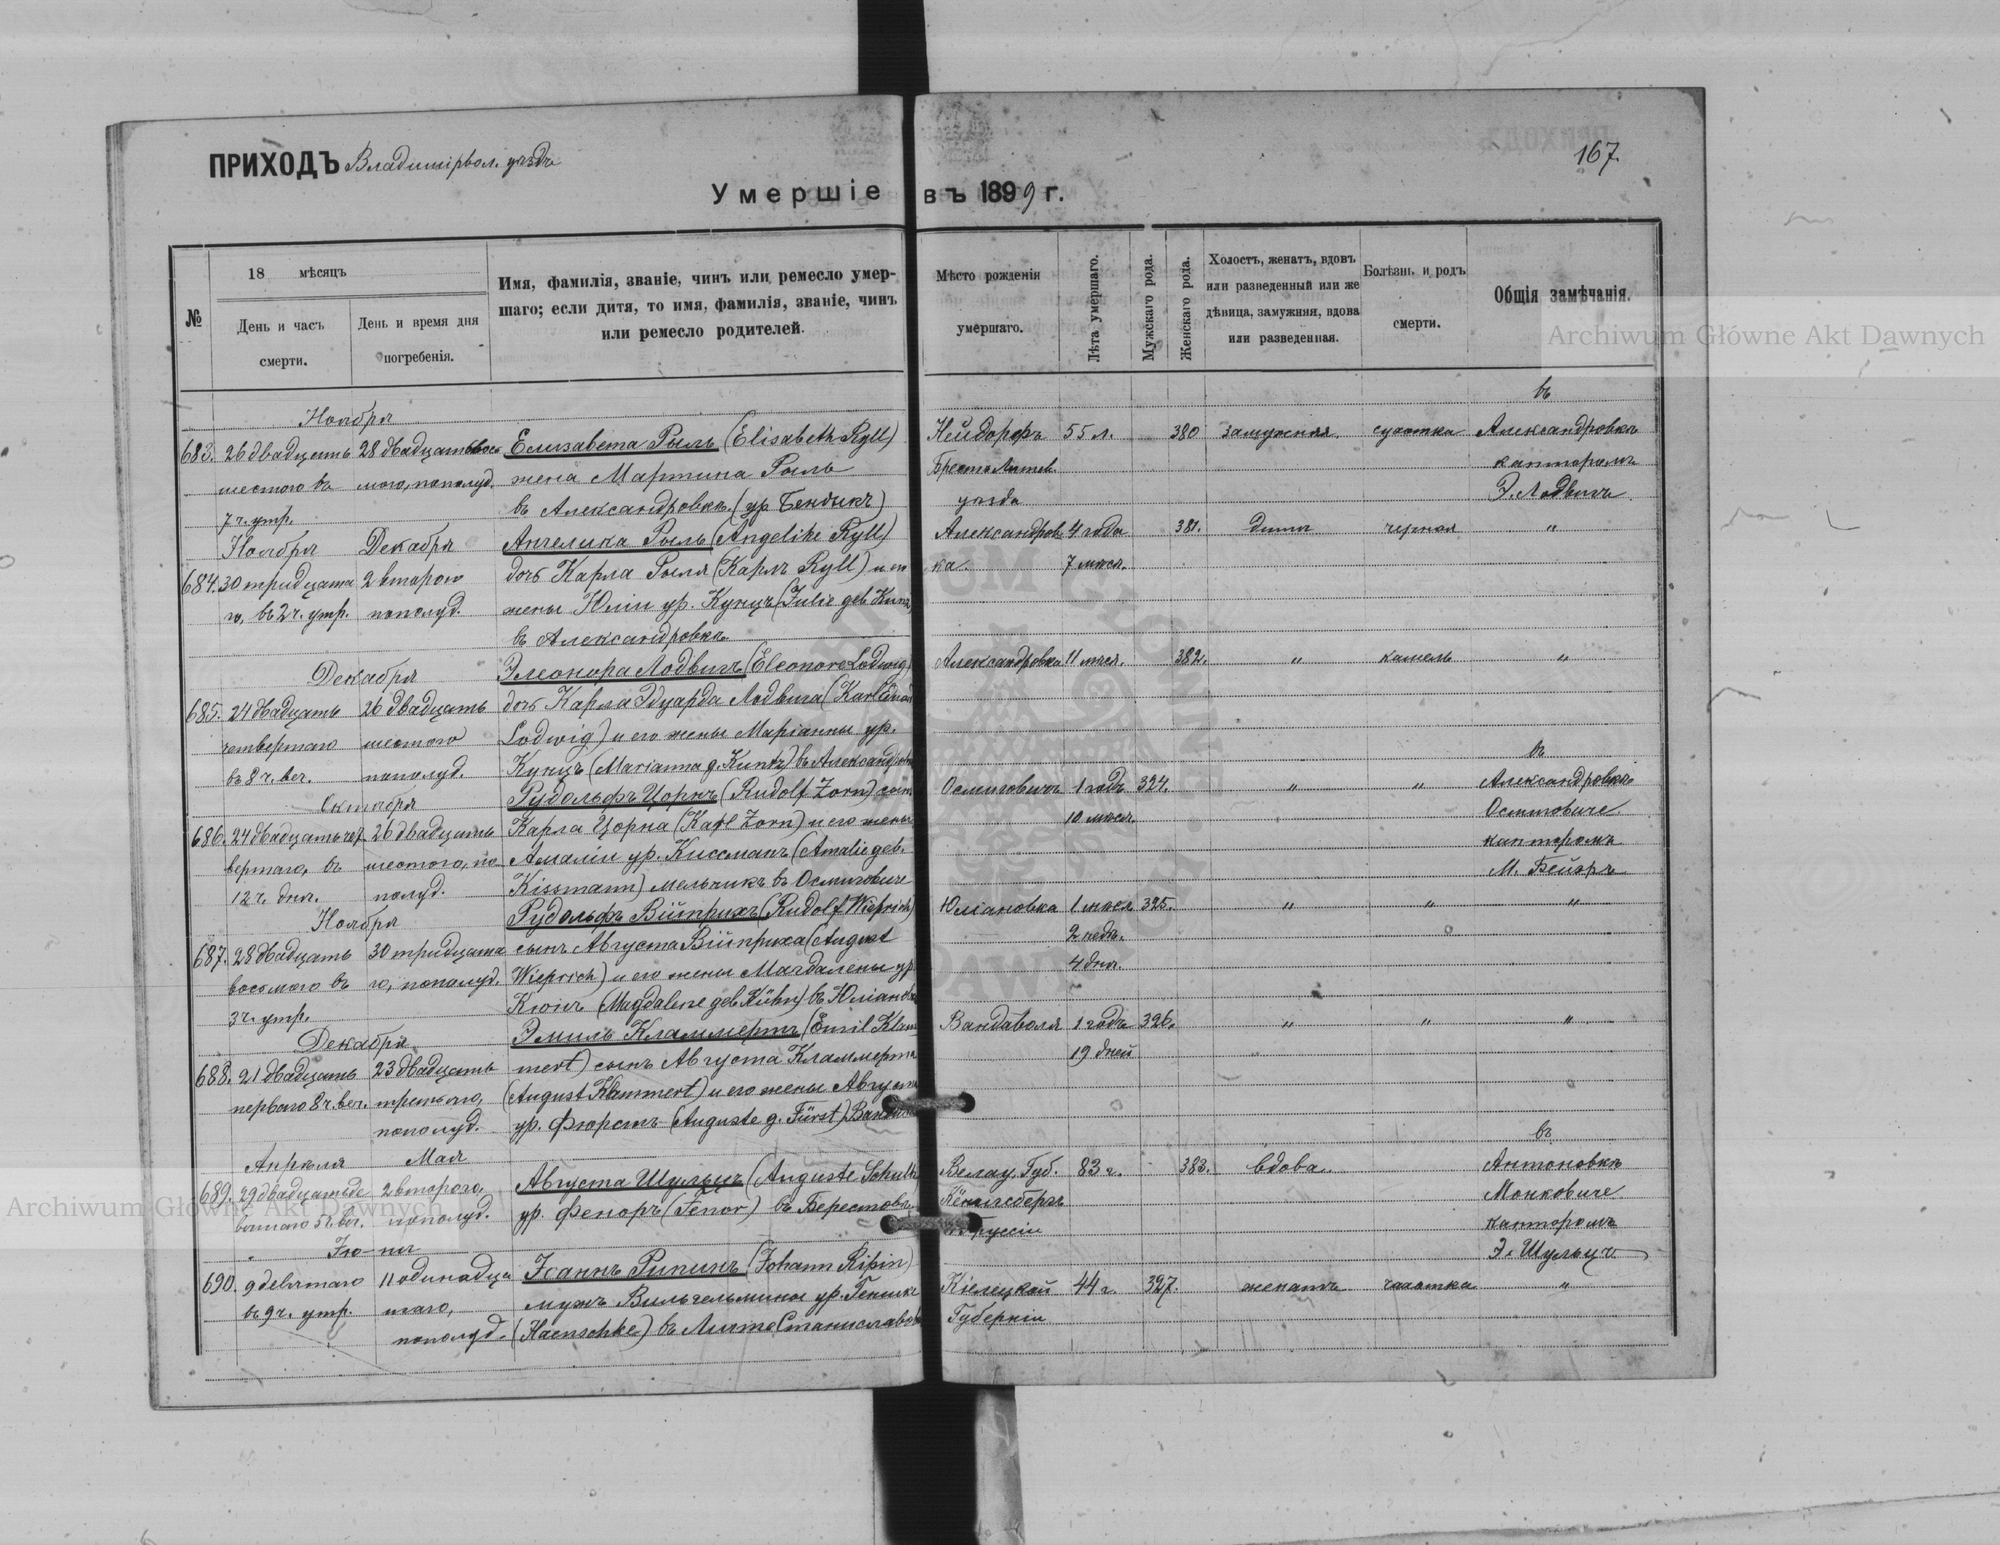 ПРИХОДЪ Владимірвол. уѣздъ
167.
Умершіе въ 1899 г.
№
18 мѣсяцъ
День и часъ смерти.
День и время дня погребенія.
Имя, фамилія, званіе, чинъ или ремесло умер-
шаго; если дитя, то имя, фамилія, званіе, чинъ
или ремесло родителей.
Мѣсто рожденія
умершаго.
Лѣта умершаго.
Мужскаго рода.
Женскаго рода.
Холостъ, женатъ, вдовъ
или разведенный или же
дѣвица, замужняя, вдова
или разведенная.
Болѣзнь и родъ
смерти.
Общія замѣчанія.
Archiwum Główne Akt Dawnych
въ
Ноября
683. 26 двадцать 28 двадцать вось Елизавета Рыль (Elisabeth Ryll) Нейдорфъ 55 л. 380 замужняя сухотка Александровкѣ
шестого въ мого, пополуд. жена Мартина Рыль Брестъ Литов. канторомъ
7 ч. утр. въ Александровкѣ (ур. Бендикъ) уѣзда Э. Лодвигъ
Ноября Декабря Ангелика Рыль (Angelike Ryll) Александров 4 года 381. дитя черная "
684. 30 тридцата 2 второго дочь Карла Рыля (Карлъ Ryll) и его ка. 7 мѣся.
го, въ 2 ч. утр. пополуд. жены Юліи ур. Кунцъ (Julie geb. Kunz)
въ Александровкѣ
Декабря Элеонора Лодвигъ (Eleonore Lodwig) Александровка 11 мѣся. 382. " кашель "
685. 24 двадцать 26 двадцать дочь Карла Эдуарда Лодвига (Karl Eduard
четвертаго шестого Lodwig) и его жены Маріанны ур.
въ 8 ч. веч. пополуд. Кунцъ (Marianna g. Kuntz) въ Александровкѣ
въ
Октября Рудольфъ Цорнъ (Rudolf Zorn) сынъ Осмиговичъ 1 годъ 324. " " Александровкѣ
686. 24 двадцать чет 26 двадцать Карла Цорна (Karl Zorn) и его жены 10 мѣся. Осмиговиче
вертаго, въ шестого, по Амаліи ур. Киссманъ (Amalie geb. канторомъ
12 ч. дня. полуд. Kissmann) мельникъ въ Осмиговиче М. Бейеръ
Ноября Рудольфъ Війприхъ (Rudolf Wieprich) Юліановка 1 мѣся. 325. " " "
687. 28 двадцать 30 тридцата сынъ Августа Війприха (August 2 нед.
восьмого въ го, пополуд. Wieprich) и его жены Магдалены ур. 4 дня.
3 ч. утр. Кюнъ (Magdalene geb. Kühn) въ Юліановкѣ
Декабря Эмиль Кламмертъ (Emil Klam Вандаволя 1 годъ 326. " " "
688. 21 двадцать 23 двадцать mert) сынъ Августа Кламмерта 19 дней
перваго 8 ч. веч. третьяго, (August Klammert) и его жены Августы
пополуд. ур. Фюрстъ (Auguste g. Fürst)
въ
Апрѣля Мая Августа Шульцъ (Auguste Schultz Велау Губ. 83 г. 383. вдова Антоновкѣ
689. 29 двадцать де 2 второго, ур. Феноръ (Fenor) въ Кёнигсбергъ Монковиче
вятаго 5 ч. веч. пополуд. Пруссіи канторомъ
" Іюня Э. Шульцъ
690. 9 девятаго 11 одинадца Іоаннъ Рипинъ (Johann Ripin) Кѣлецкой 44 г. 327. женатъ чахотка "
въ 9 ч. утр. таго, мужъ Вильгельмины ур. Геншке Губерніи
пополуд. (Haenschke) въ
Archiwum Główne Akt Dawnych